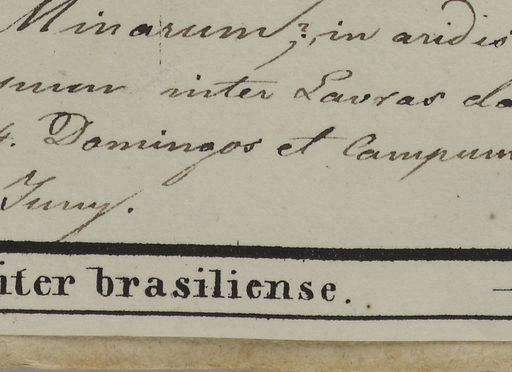 Minarum?, in aridis
inter Lavras da
Domingos et Campum
Juny.
iter brasiliense.